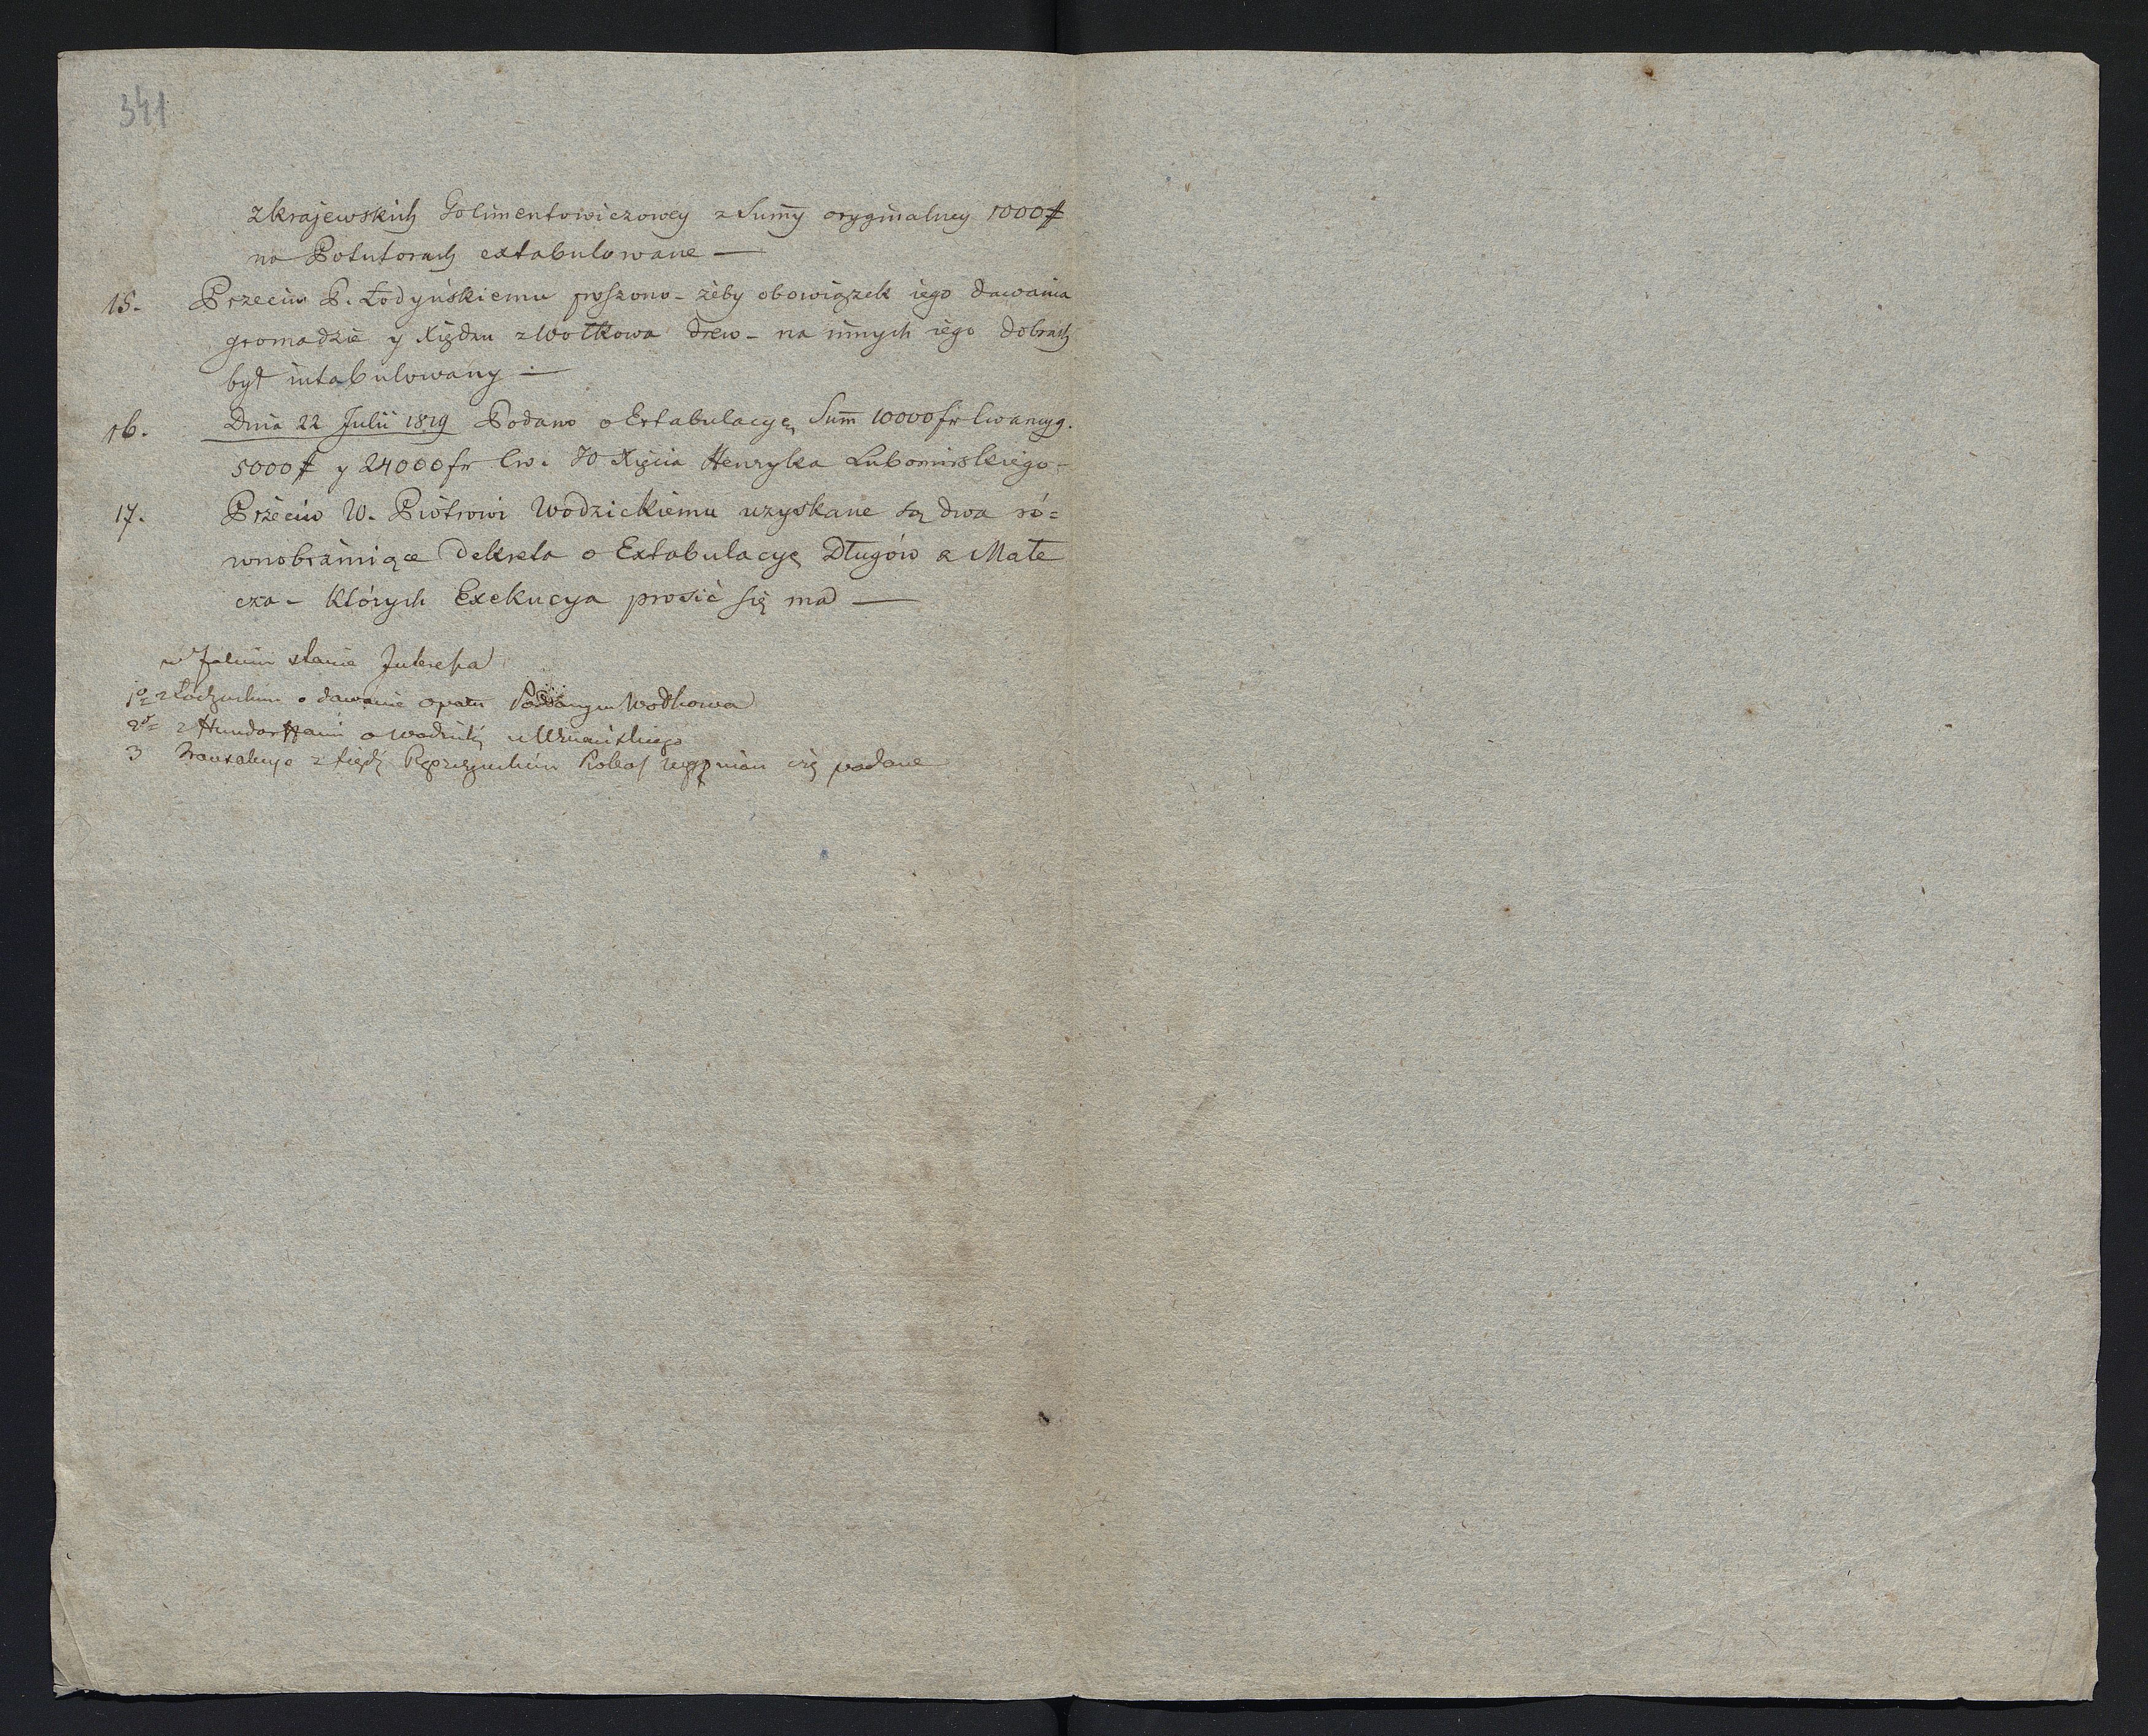 341
z Krajewskich Golimentowiczowey z Summy oryginalney 1000 #
na Potutorach extabulowane —
15. Przeciw P. Łodyńskiemu proszono – żeby obowiązek iego dawania
gromadzie y Xiędzu z Wołkowa drew – na innych iego dobrach
był intabulowany —
16. Dnia 22 Julii 1819 Podano o Extabulacyę Sum̄ 10000 fr Cwancyg.
5000 # y 24000 fr Cw. JO Xięcia Henryka Lubomirskiego –
17. Przeciw W. Piotrowi Wodzickiemu uzyskane są dwa ró=
wnobrzmiące Dekreta o Extabulacyę Długów z Małe
cza – których Exekucya prosić się ma —
w Jakim stanie Interessa
1o z o dawanie opału Wołkowa
2do z o
3 z się podane